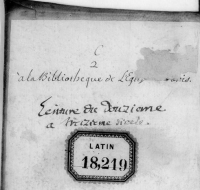 C
2
a la Bibliotheque de l'Eglise
Ecriture du Douzieme
a treizieme siecle.
LATIN
18,219